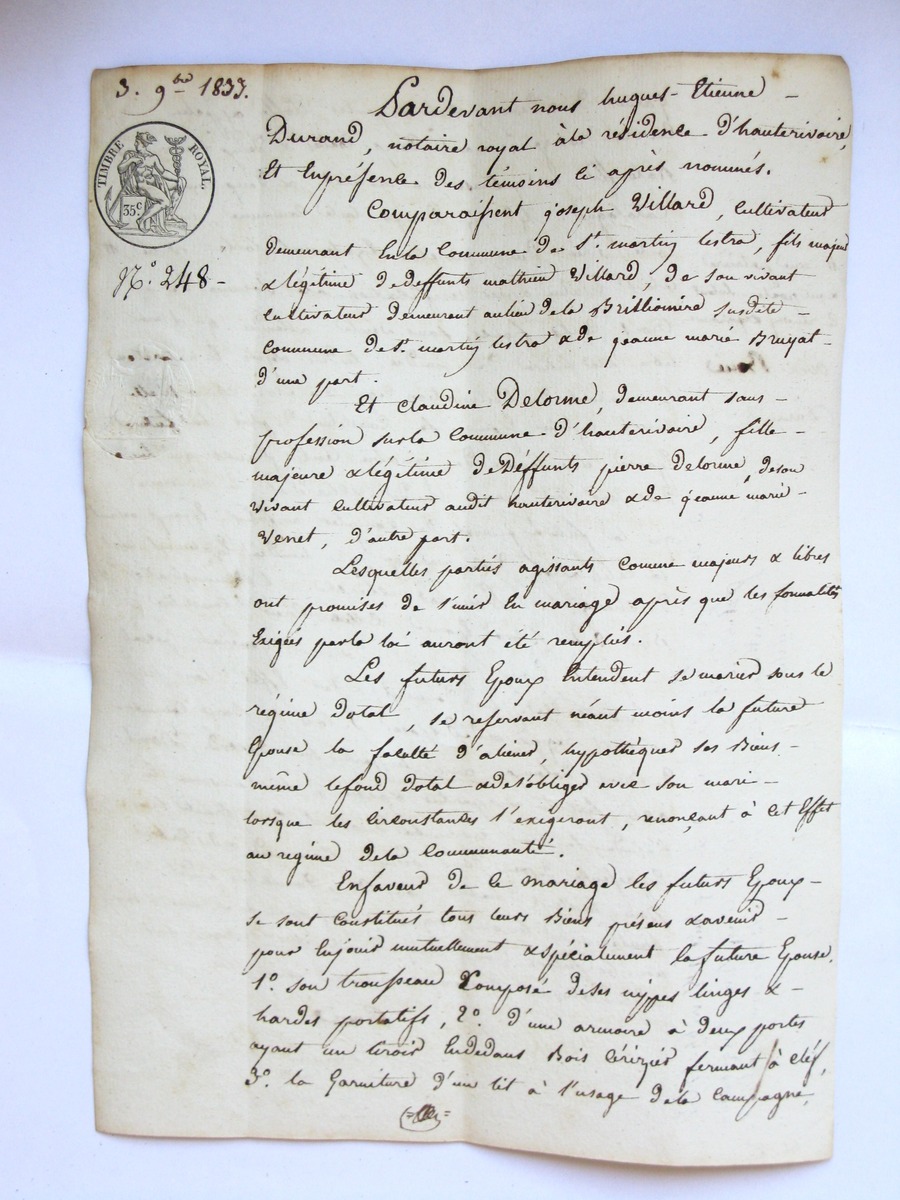 3. 9bre 1833.
TIMBRE ROYAL.
35c
No. 248 -
Pardevant nous hugues-Etienne -
Durand, notaire royal à la résidence d'hauterivoire,
Et Enprésence des témoins ci après nommés.
Comparaissent joseph Villard, Cultivateur
demeurant En la Commune de St. martin lestra, fils majeur
& légitime de deffunts mathieu Villard, de son vivant
Cultivateur demeurant au lieu de la Brillionière susdite -
Commune de St. martin lestra & de jeanne marie Bruyat -
d'une part.
Et Claudine Delorme, demeurant sans -
profession sur la Commune d'hauterivoire, fille -
majeure & légitime de Déffunts pierre delorme, de son
vivant Cultivateur audit hauterivoire & de jeanne marie -
Venet, d'autre part.
Lesquelles parties agissants Comme majeurs & libres
ont promises de s'unir En mariage après que les formalités
Exigées par la loi auront été remplies.
Les futurs Epoux Entendent se marier sous le
régime dotal, se reservant néant moins la future
Epouse la faculté d'aliener, hypothéquer ses Biens -
même le fond dotal & de s'obliger avec son mari -
lorsque les Circonstances l'exigeront, renonçant à Cet Effet
au regime de la Communauté.
En faveur de Ce mariage les futurs Epoux -
Se sont Constitués tous leurs Biens présens & avenir -
pour En jouir mutuellement & spécialement la future Epouse.
1o. son trousseau Composé de ses nippes linges & -
hardes portatifs, 2o. d'une armoire à deux portes
ayant un tiroir En dedans Bois Cérizier fermant à Cléf,
3o. la Garniture d'un lit à l'usage de la Campagne,